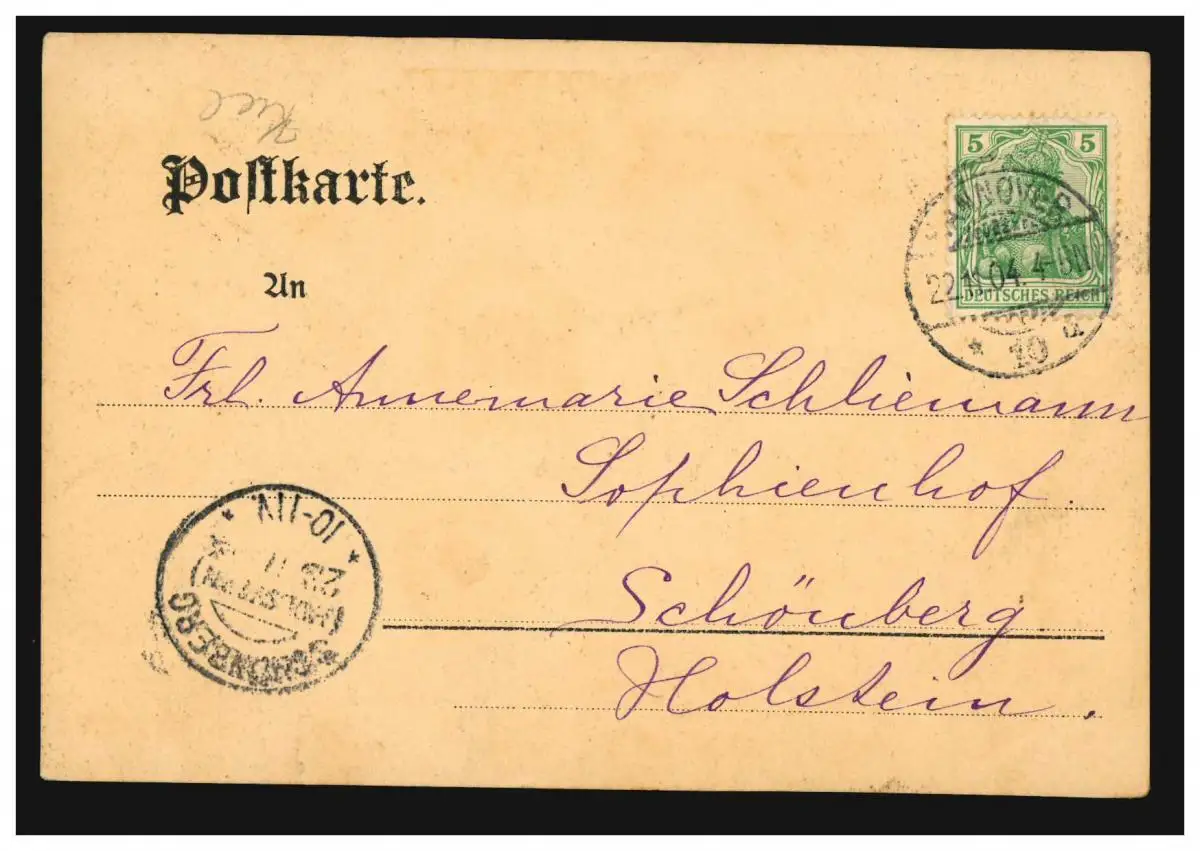 Kiel
Postkarte.
An
5 5
DEUTSCHES REICH
HANNOVER
22.11.04. 4-5N
* 10 a
Frl. Annemarie Schliemann
Sophienhof.
Schönberg
Holstein.
SCHÖNBERG
(HOLSTEIN)
23 11
* 10-11V. *